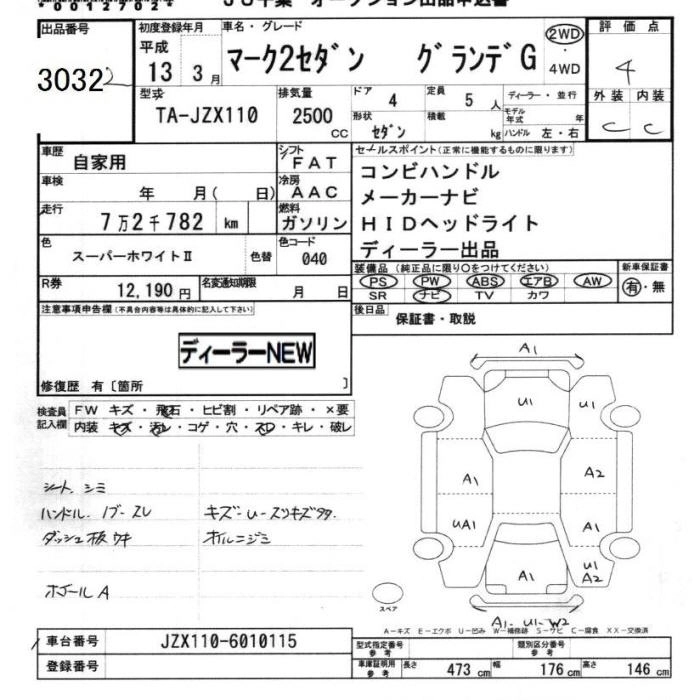 出品番号
3032
初度登録年月
平成
13 3月
車名・グレード
マーク2セダン グランデG
2WD
4WD
評価点
4
外装 内装
C C
型式
TA-JZX110
排気量
2500
CC
ドア
4
定員
5 人
ディーラー・並行
形状
セダン
積載
kg
モデル年式 年
ハンドル 左・右
車歴
自家用
シフト
FAT
車検
年 月( 日)
冷房
AAC
走行
7万2千782 km
燃料
ガソリン
色
スーパーホワイトⅡ
色替
色コード
040
R券
12,190円
名変通知期限
月 日
セールスポイント(正常に機能するものに限ります)
コンビハンドル
メーカーナビ
HIDヘッドライト
ディーラー出品
装備品(純正品に限り○をつけてください)
PS PW ABS エアB AW
SR ナビ TV カワ
新車保証書
有・無
後日品
保証書・取説
注意事項申告欄(不具合内容等は具体的に記入して下さい)
ディーラーNEW
修復歴 有〔箇所 〕
検査員
記入欄
FW キズ・飛石・ヒビ割・リペア跡・×要
内装 キズ・汚レ・コゲ・穴・スレ・キレ・破レ
シート、シミ
ハンドル、ノブ-スレ
キズ-U-スリキズ多々.
ダッシュ板ウキ
オイルニジミ
ホイールA
A1
U1
U1
A1
A2
UA1
A1
U1
A2
A1
A1-U1-W2
スペア
A-キズ E-エクボ U-凹み W-補修跡 S-サビ C-腐食 XX-交換済
車台番号
JZX110-6010115
登録番号
型式指定番号
参考
類別区分番号
参考
車庫証明用
参考
長さ 473 cm
幅 176 cm
高さ 146 cm